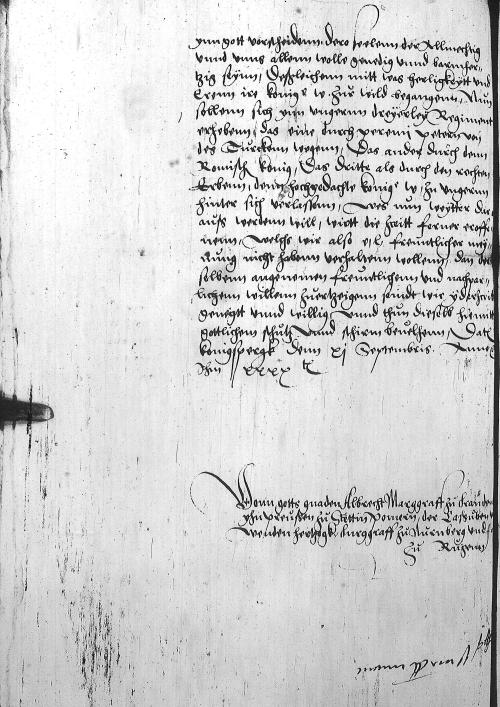 ynn gott vorscheidenn, dero seelenn der Allmechtig
vnnd vnns allenn wolle genedig vnnd barmher-
tzig seynn, Desgleichenn mitt was herligkeytt vnd
Erenn ire konig w zur bild begangenn, Nun
sollenn sich ynn vngernn dreyerley Regiment
erhebenn, das eine durch peternn
des Turckenn wegenn, Das ander durch denn
Romisch konig, Das dritte als durch den rechten
Erbenn, denn hochgedachte konig w zu vngernn
hinter sich verlassenn, Was nun weytter dar
auss werdenn will, wirtt die Zeitt ferner eroff-
nenn, Welchs wir also e l freuntlicher mey
nung nicht habenn verhaltenn wollenn, dan der
selbenn angenemen freuntlichenn vnd nachpar-
lichenn willenn zuertzeigenn seindt wir yderzeitt
geneigt vnnd willig, vnnd thun dieselb hiemit
gottlichem schutz vnnd schirm beuelhenn, Dat
konigspergk denn xj Septembris. Anno
Im xxxx

Vonn gotts gnaden Albrecht Marggraff zu Branden
ynn preussen zu Stettin pomern, der Cassuben
Wenden hertzogk, Burggraff zu Nurnberg vnd
zu Rugenn
mann